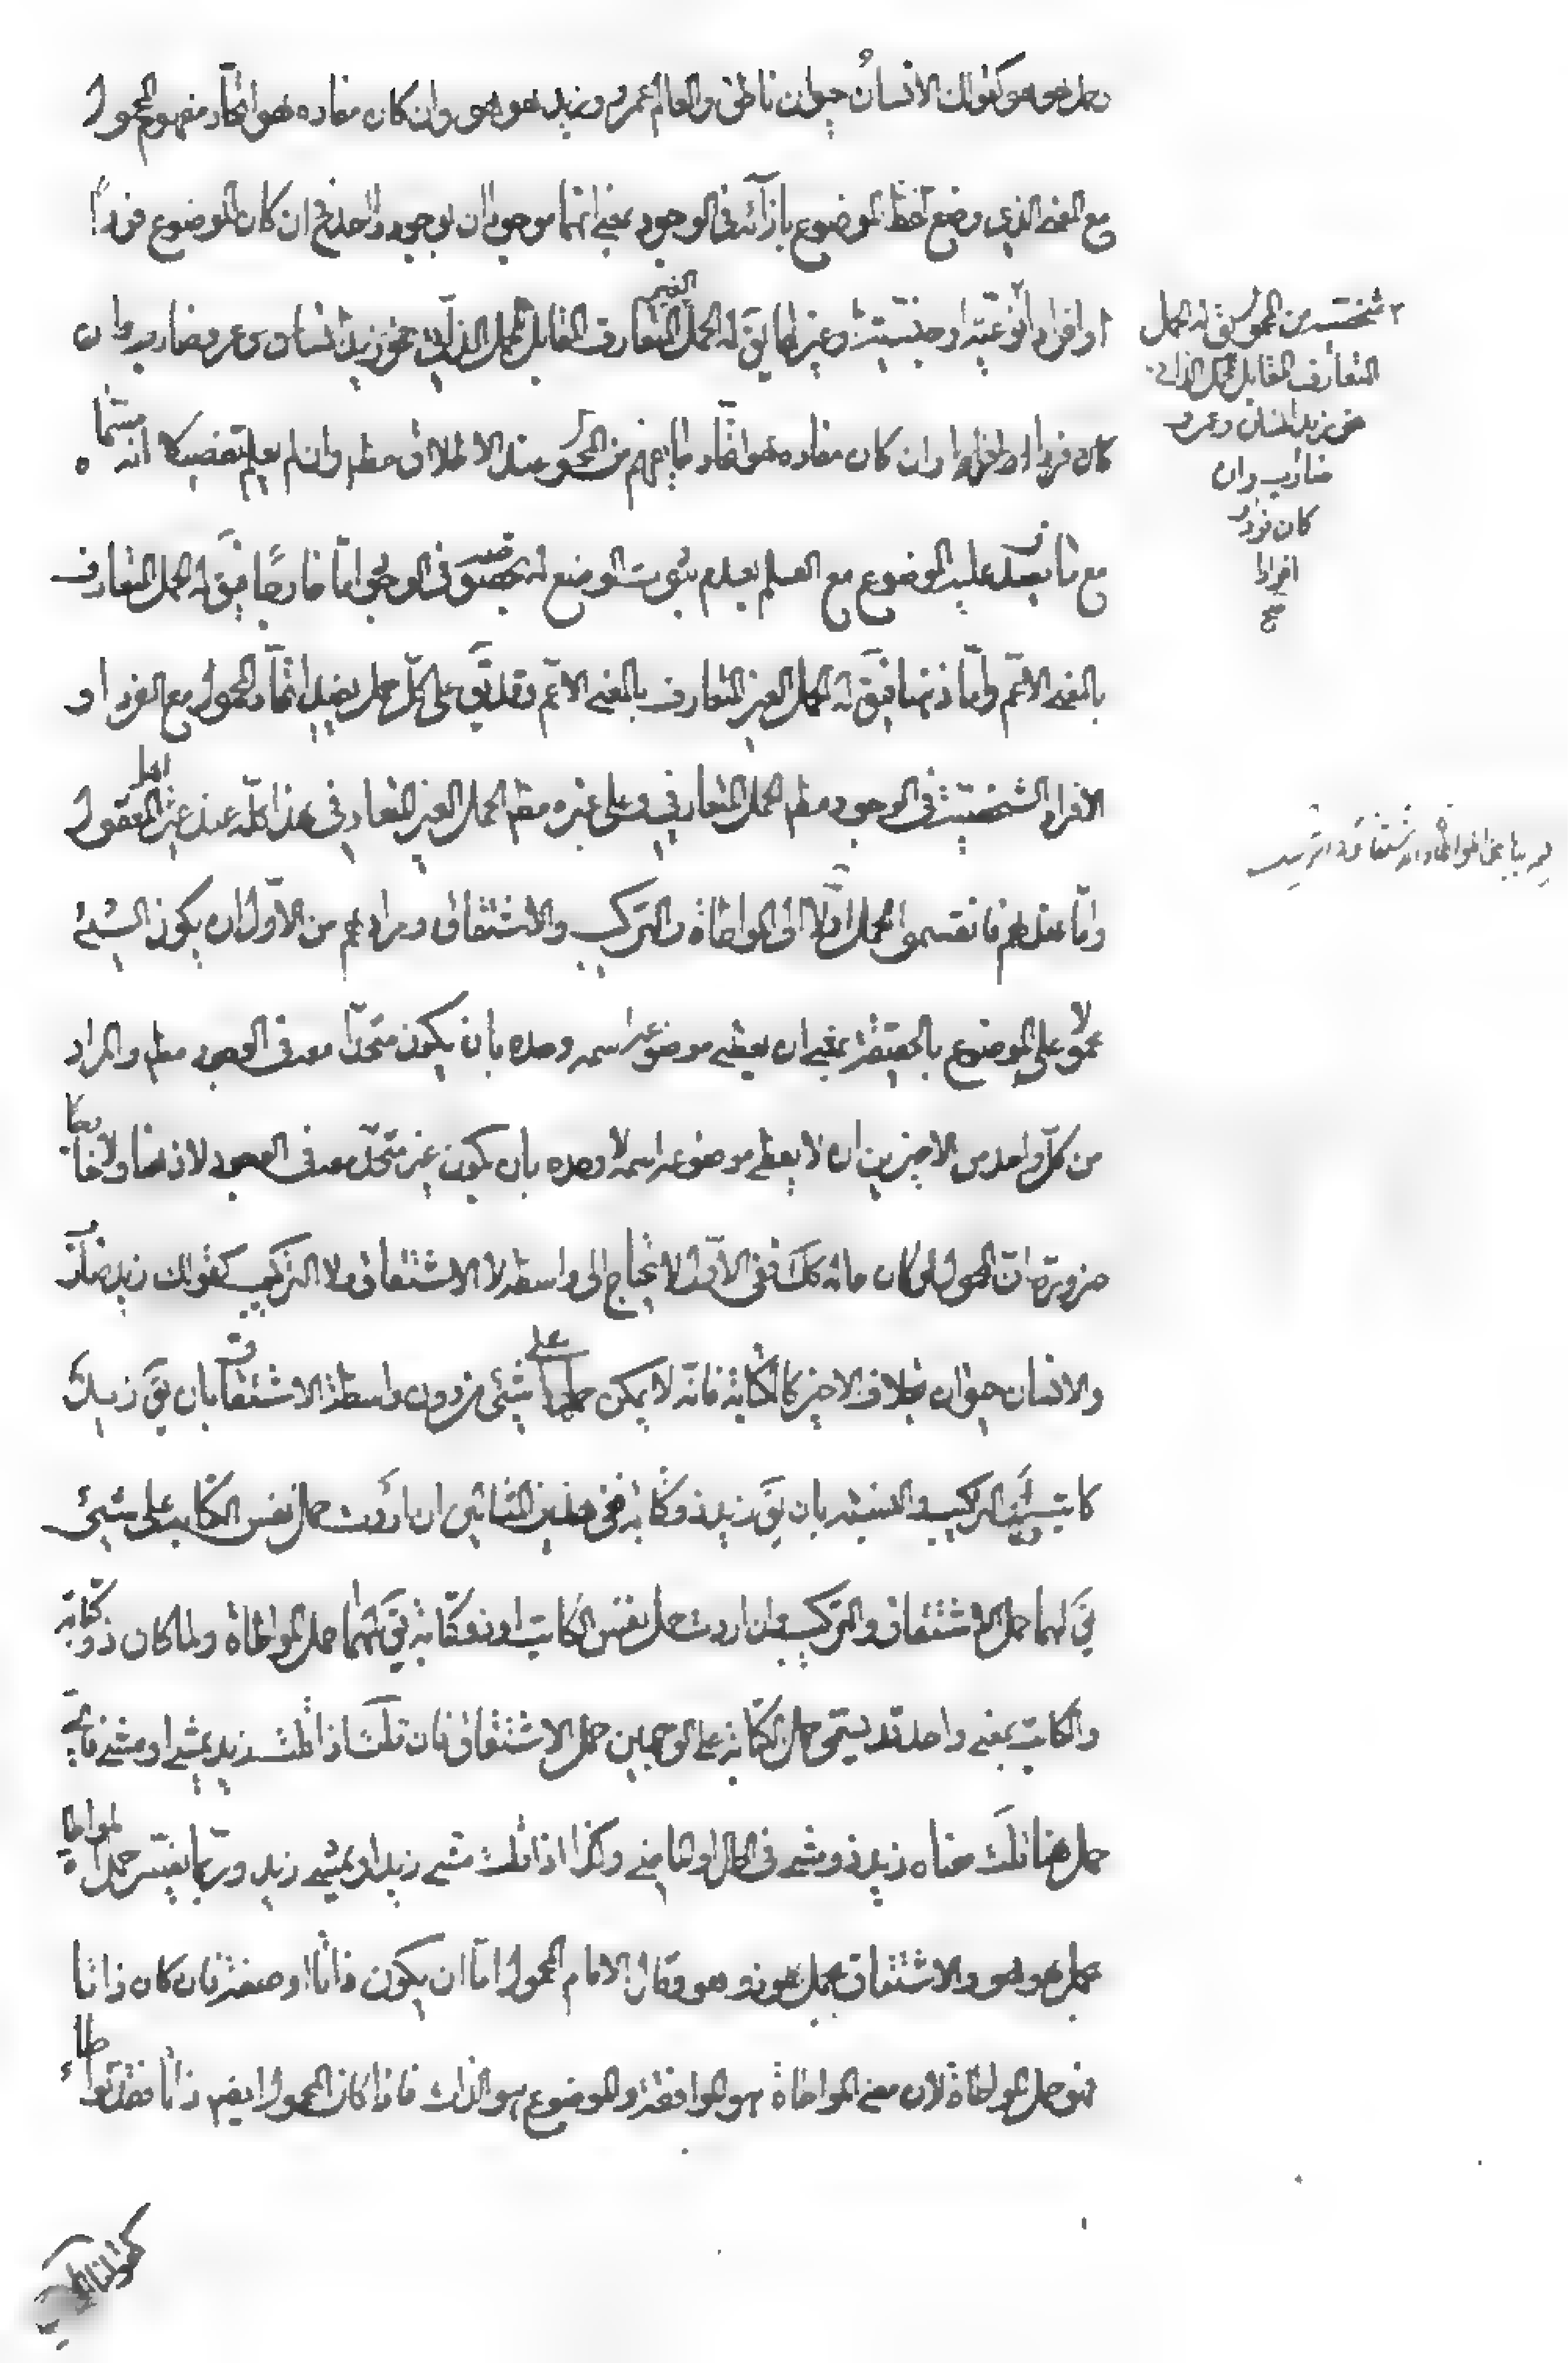 وحمل هو هو كقولك الانسان حيوان ناطق والعالم عمرو وزيد هو هو وان كان مفاده هو اتحاد مفهوم المحمول
مع المعنى الذي وضع لفظ الموضوع بازائه في الوجود بمعنى انهما موجودان بوجود واحد فح ان كان الموضوع فردا
او افرادا نوعيّة او جنسيّة وغيرها يق له الحمل المتعارف المقابل للحمل الذاتي نحو زيد انسان وعمرو ضارب وان
كان فردا او افرادا وان كان مفاده هو اتحاد ما يفهم من المحمول عند الاطلاق مطلقا وان لم يعلم تفصيلا انه
مع ما يصدق عليه الموضوع مع العلم بعدم ثبوت الوضع له في الوجود امّا خارجًا فيق له الحمل المتعارف
بالمعنى الاعمّ وامّا ذهنا فيق له الحمل الغير المتعارف بالمعنى الاعمّ وقد يق على كلّ حمل يفيد اتّحاد المحمول مع الفرد او
الافراد الشخصيّة في الوجود مطلقا الحمل المتعارف وعلى غيره مطلقا الحمل الغير المتعارف هذا كلّه عند غير اهل المعقول
وامّا عندهم فانقسموا الحمل اوّلا الى المواطاة والتركيب والاشتقاق ومرادهم من الاوّل ان يكون الشيئ
محمولا على الموضوع بالحقيقة بمعنى ان يعطى موضوعه اسمه وحده بان يكون متّحدا معه في الوجود مطلقا والمراد
من كلّ واحد من الاخيرين ان لا يعطى موضوعه اسمه ولا وحده بان يكون غير متّحد معه في الوجود لا ذهنا ولا خارجا
ضرورة ان المحمول كان حاله كك ففي الاوّل لا يحتاج الى واسطة لا الاشتقاق ولا التركيب كقولك زيد ضارب
والانسان حيوان بخلاف الاخير كالكتابة فانه لا يمكن حملها على شيئ من دون واسطة الاشتقاق بان يق زيد
كاتب التركيب والنسبة بان يق زيد ذو كتابة ففي هذين المثالين ان اردت حمل نفس الكتابة على شيئ
يق لهما حمل الاشتقاق والتركيب وان اردت حمل نفس الكاتب او ذو كتابة يق لهما حمل المواطاة ولما كان ذو كتابة
والكاتب بمعنى واحد قد يسمّى حمل الكتابة على الوجهين حمل الاشتقاق فان قلت اذا قلت زيد يمشي او مشى فاىّ
حمل هنا قلت معناه زيد ذو مشي في الحال او الماضي وكذا اذا قلت مشى زيد او يمشي زيد وربّما يفسّر حمل المواطاة
بحمل هو هو والاشتقاق بحمل هو ذو هو وقال الامام المحمول امّا ان يكون ذاتا او صفة فان كان ذاتا
فهو حمل المواطاة لان معنى المواطاة هو الموافقة والموضوع هو الذات فاذا كان المحمول ايضا ذاتا فقد تواطاء
شخصيّة من المحمول يق له الحمل
المتعارف المقابل للحمل الذاتي
نحو زيد انسان وعمرو
ضارب وان
كان فردا او
افرادا
صح